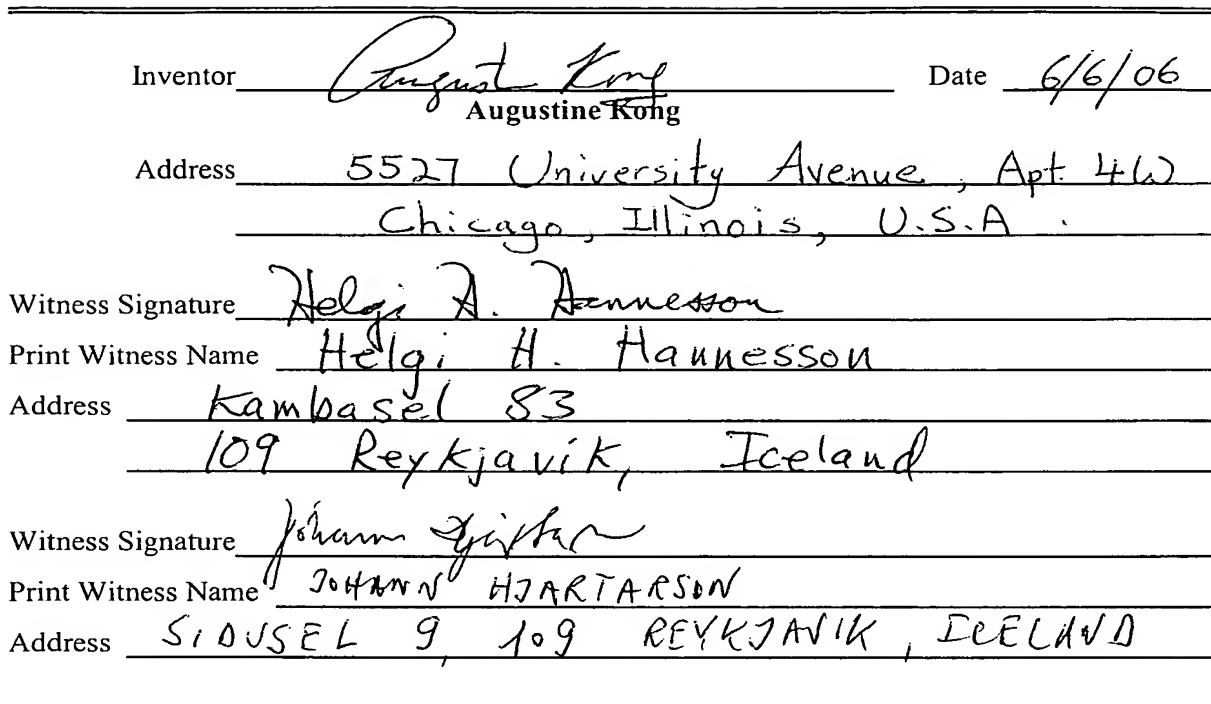 Inventor August Kong Date 6/6/06
Augustine Kong
Address 5527 University Avenue, Apt 4W
Chicago, Illinois, U.S.A.
Witness Signature Helgi H. Hannesson
Print Witness Name Helgi H. Hannesson
Address Kambasel 83
109 Reykjavík, Iceland
Witness Signature Jóhann
Print Witness Name JOHANN HJARTARSON
Address SIDUSEL 9, 109 REYKJAVIK, ICELAND